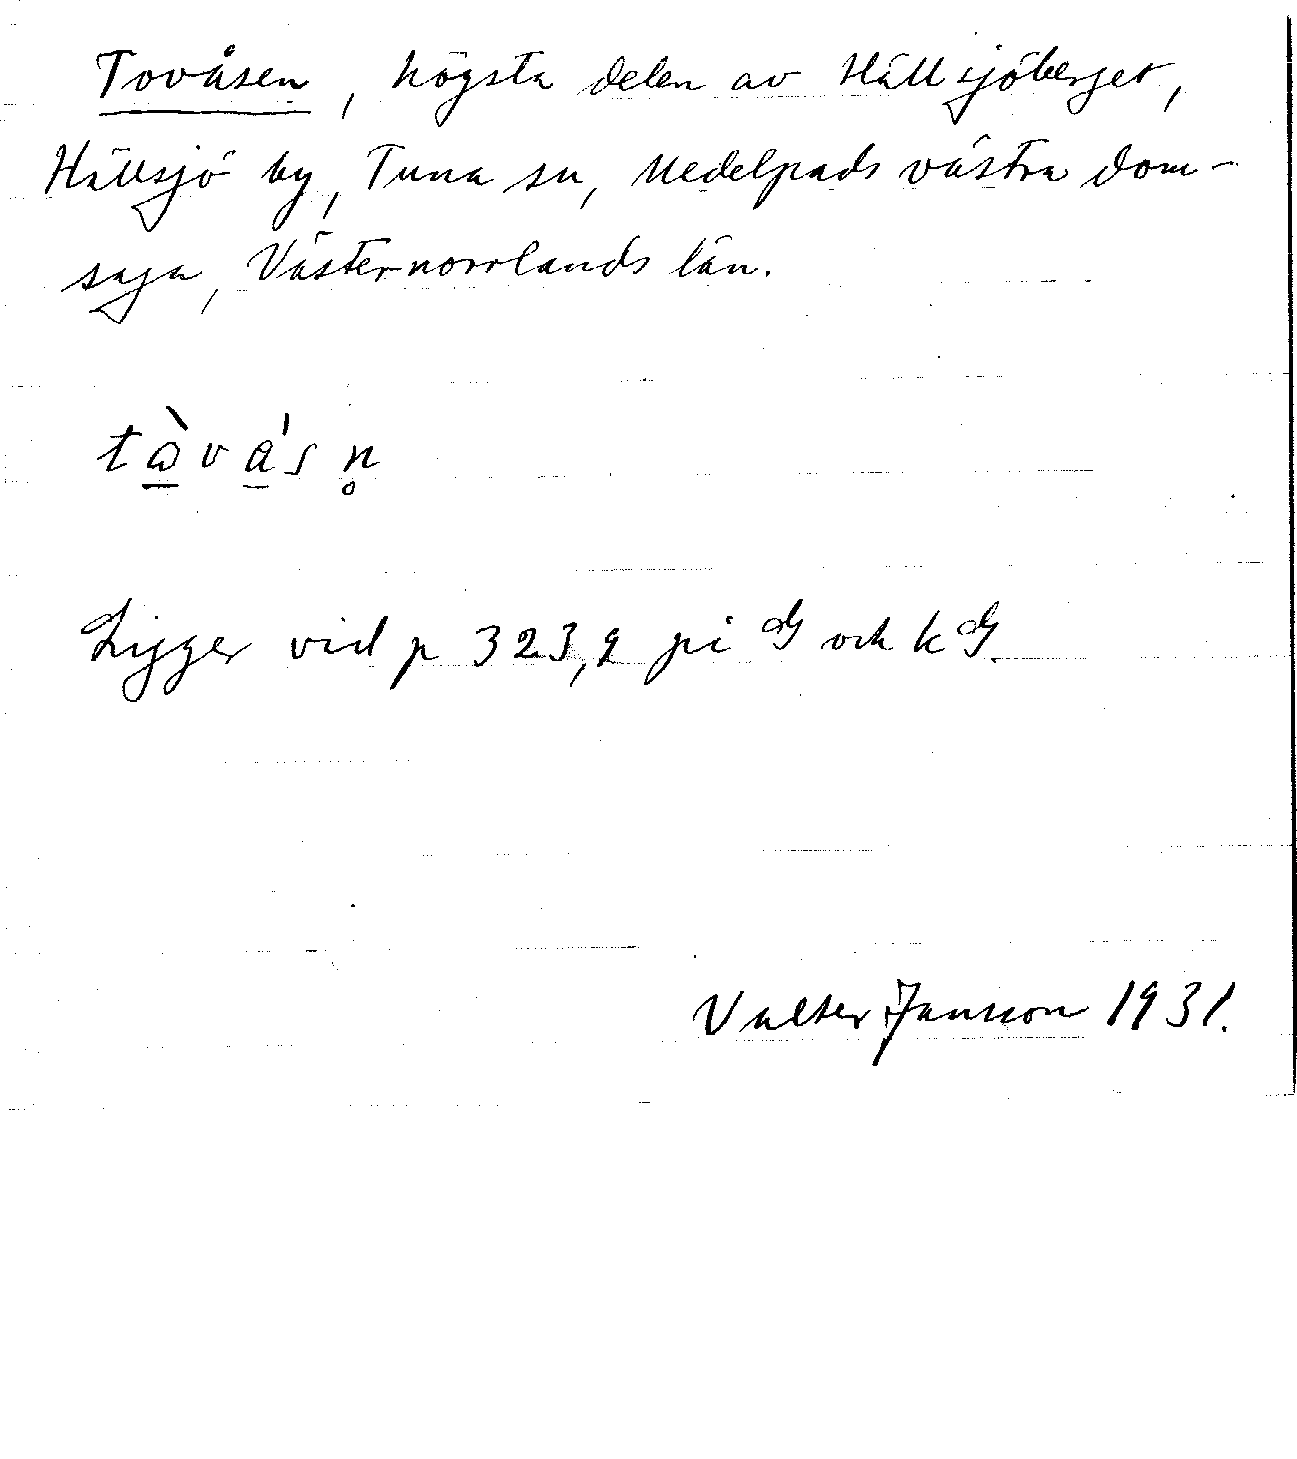 Tovåsen, högsta delen av Hällsjöberget,
Hällsjö by, Tuna sn, Medelpads västra dom-
saga, Västernorrlands län.
Ligger vid p 323,9 på och k
Valter Jansson 1931.